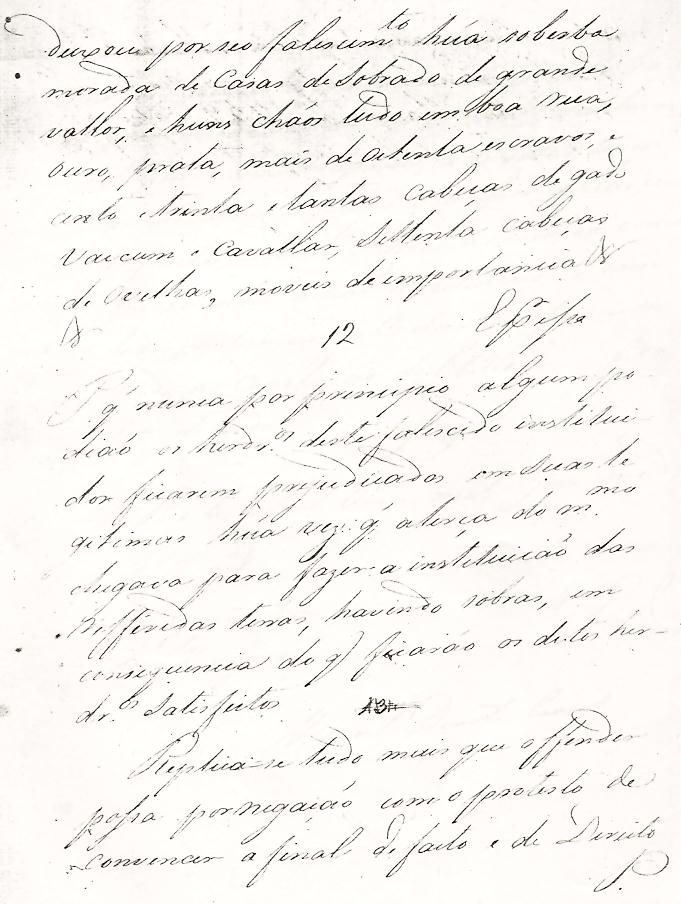 deixou por seo falescimto húa soberba
morada de Casas de Sobrado de grande
vallor, e huns cháos tudo em boa rua,
ouro, prata, mais de oitenta escravos, e
cento e trinta e tantas cabeças de gado
vaccum e cavallar, settenta cabeças
de ovelhas, moveis de importancia &
&
12
E P e ssa
P q' nunca por principio algum po
diaó os herdr.os deste falescido institui
dor ficarem prejudicados em suas le
gitimas húa vez q' aterça do mmo
chegava para fazer a instituiçaõ das
Refferidas terras, havendo sobras, em
consequencia do q' ficaráo os ditos her-
dr.os Satisfeitos
13
Replica-se tudo mais que offender
possa por negaçaó com o protesto de
convencer a final de facto e de Direito
P.